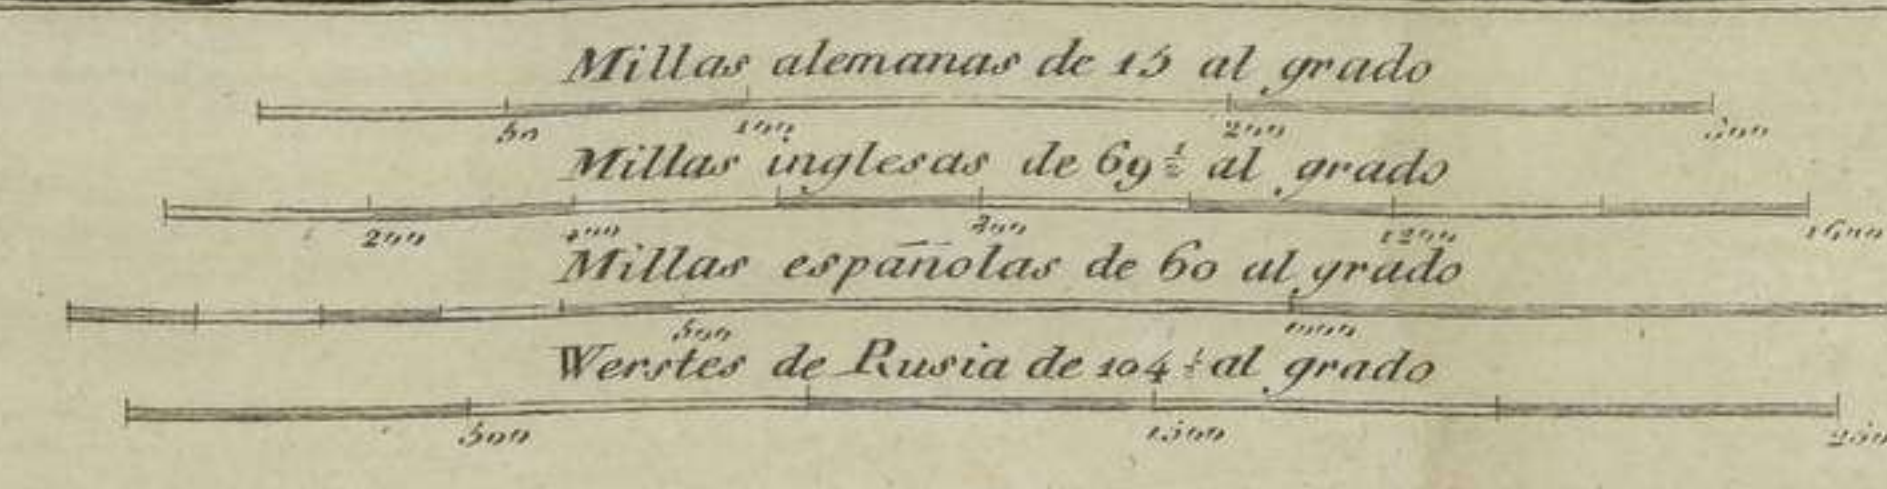 Millas alemanas de 15 al grado
50 100 200 300
Millas inglesas de 69½ al grado
200 400 800 1200 1600
Millas españolas de 60 al grado
500 1000
Werstes de Rusia de 104½ al grado
500 1500